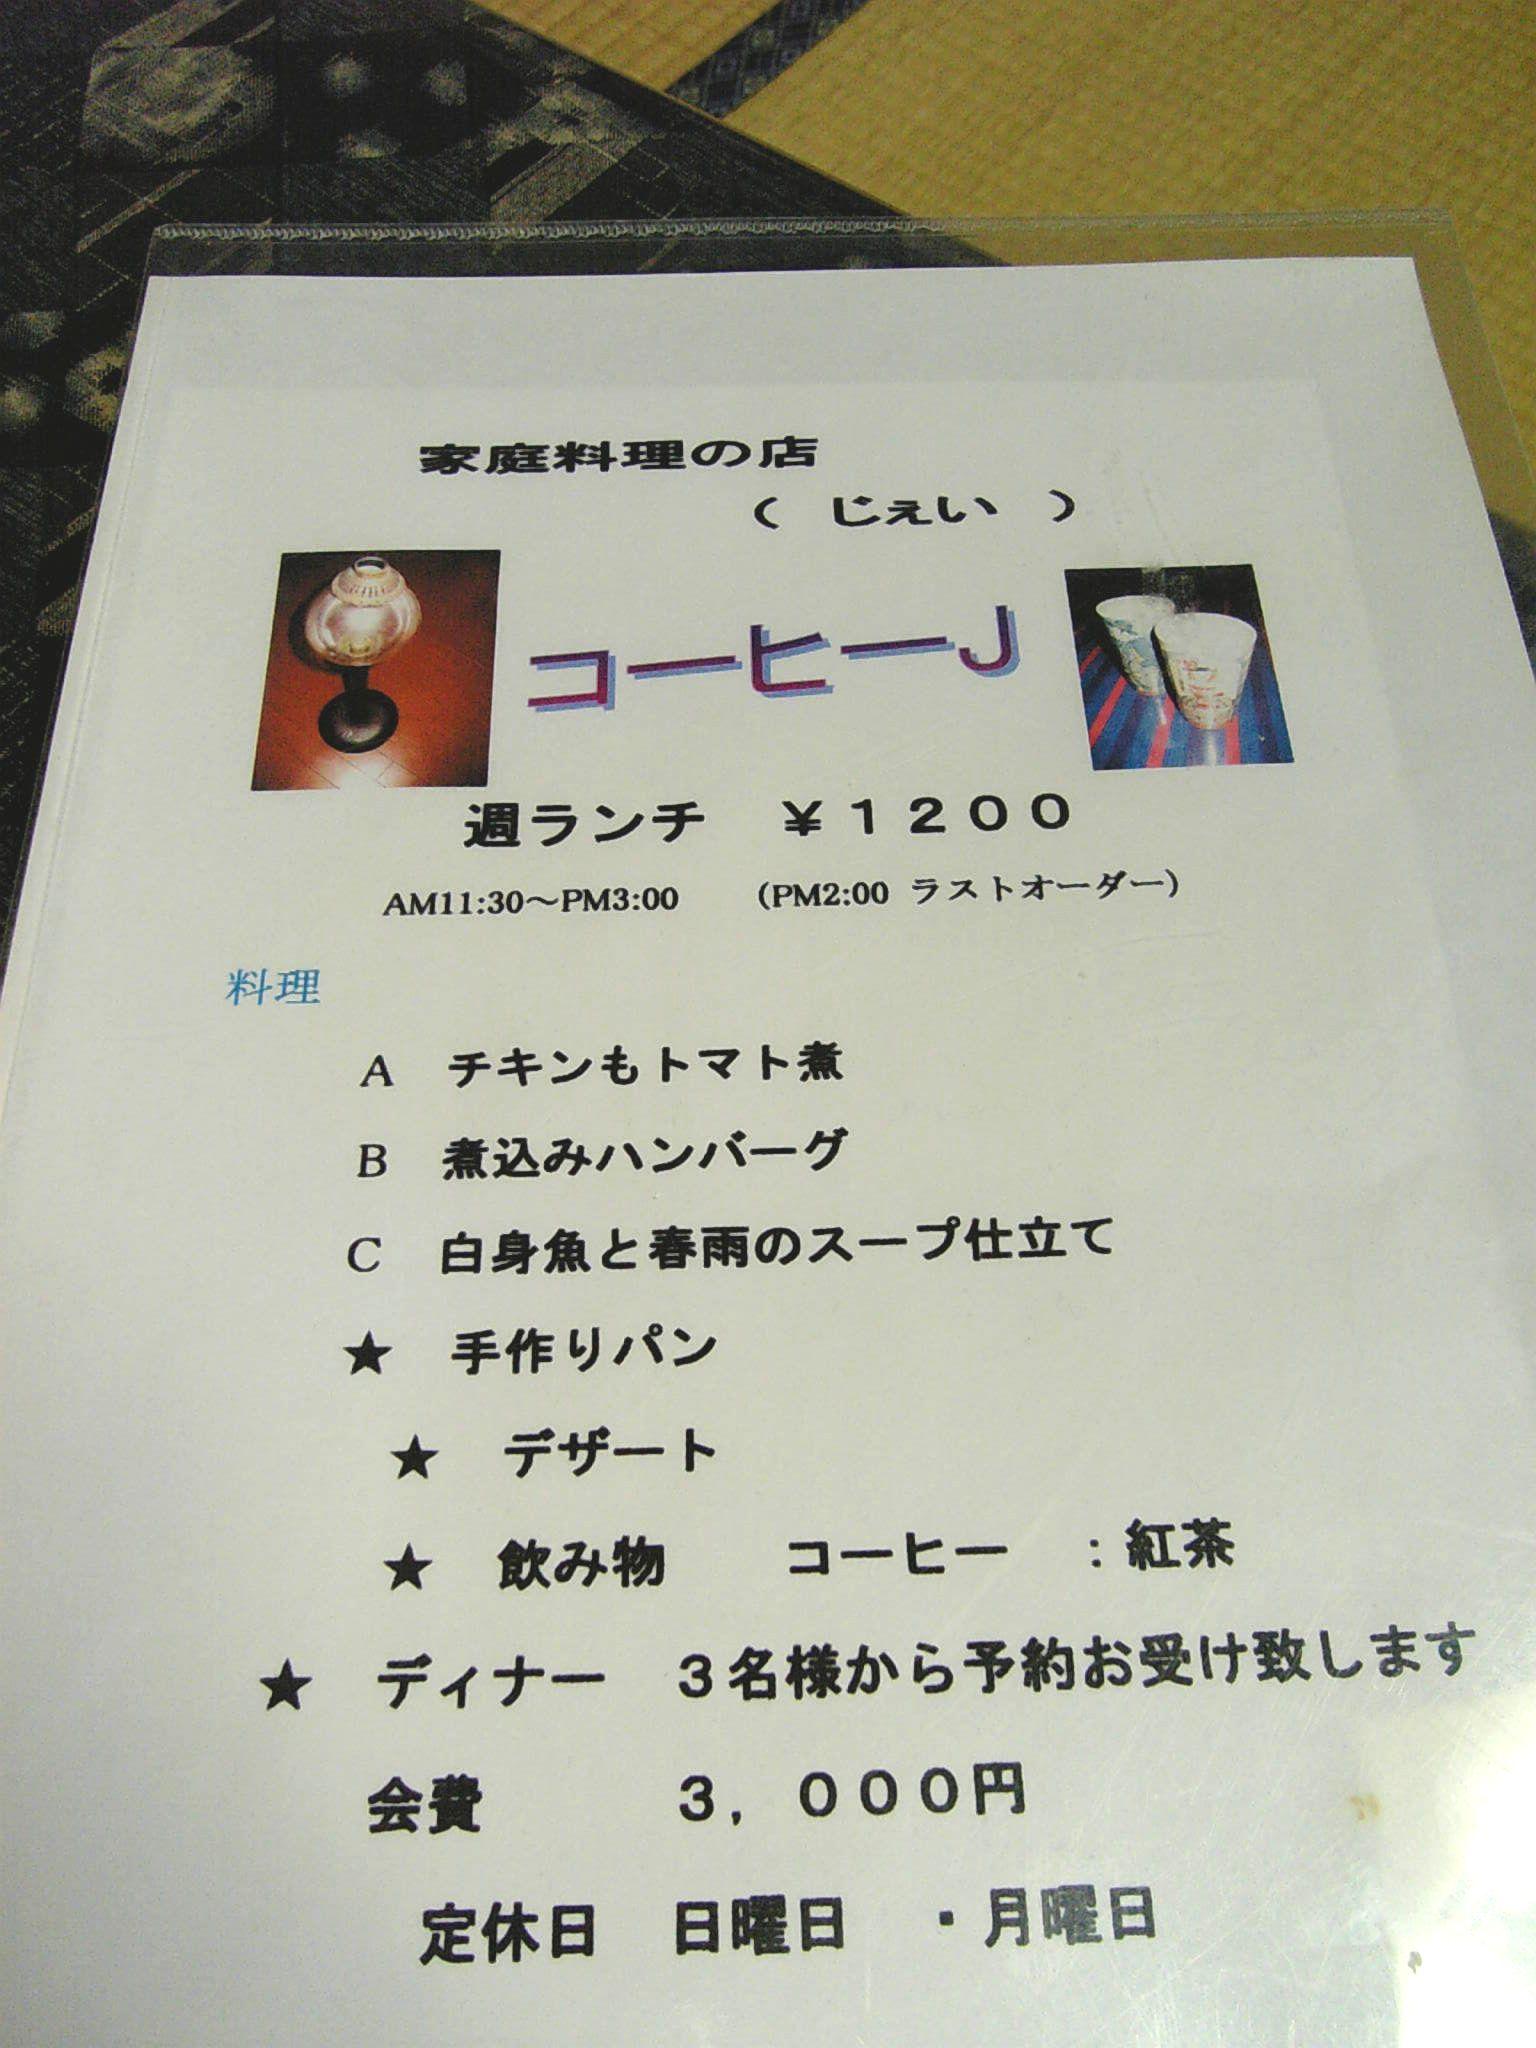 家庭料理の店
( じぇい )
コーヒーJ
週ランチ ￥１２００
AM11:30～PM3:00 (PM2:00 ラストオーダー)
料理
A チキンもトマト煮
B 煮込みハンバーグ
C 白身魚と春雨のスープ仕立て
★ 手作りパン
★ デザート
★ 飲み物 コーヒー ：紅茶
★ ディナー ３名様から予約お受け致します
会費 ３，０００円
定休日 日曜日 ・月曜日